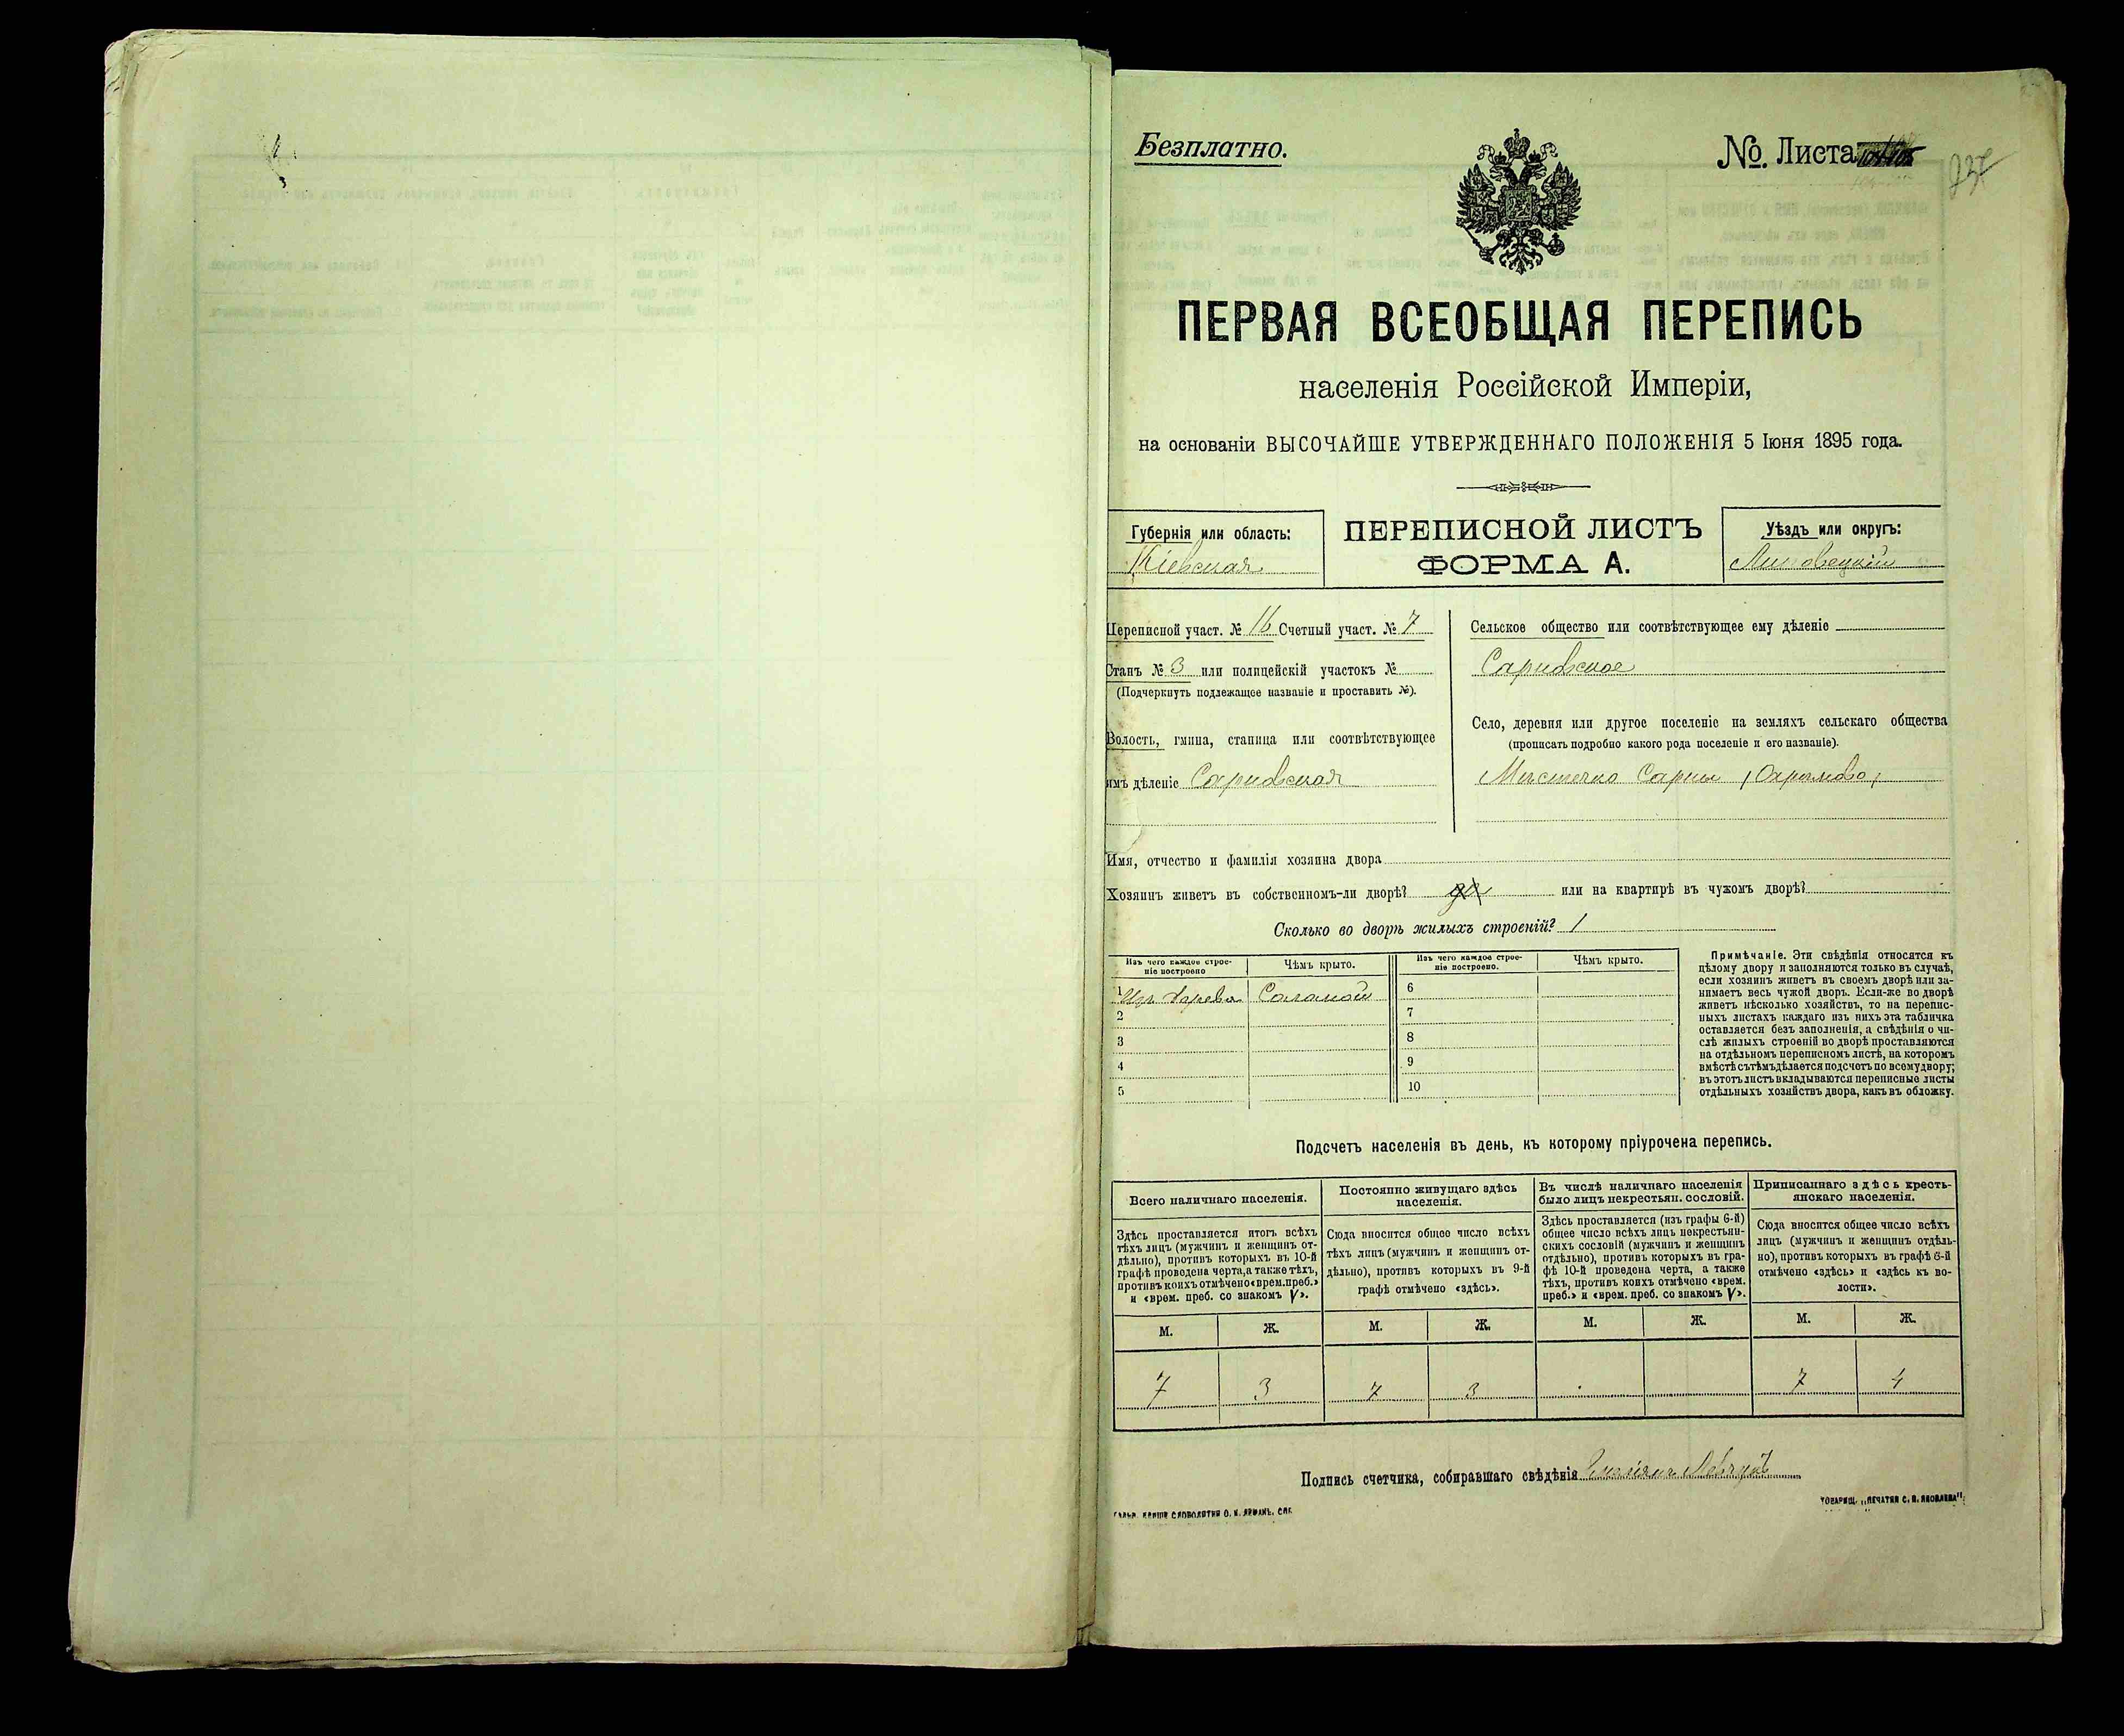 Безплатно.
№. Листа
237
ПЕРВАЯ ВСЕОБЩАЯ ПЕРЕПИСЬ
населенія Россійской Имперіи,
на основаніи ВЫСОЧАЙШЕ УТВЕРЖДЕННАГО ПОЛОЖЕНІЯ 5 Іюня 1895 года.
Губернія или область:
Кіевская
ПЕРЕПИСНОЙ ЛИСТЪ
ФОРМА А.
Уѣздъ или округъ:
Липовецкій
Переписной участ. № 16 Счетный участ. № 7
Станъ № 3 или полицейскій участокъ №
(Подчеркнуть подлежащее названіе и проставить №).
Волость, гмина, станица или соотвѣтствующее
имъ дѣленіе Сарновская
Сельское общество или соотвѣтствующее ему дѣленіе
Сарновское
Село, деревня или другое поселеніе на земляхъ сельскаго общества
(прописать подробно какого рода поселеніе и его названіе).
Мѣстечко Сарны (Охрамово)
Имя, отчество и фамилія хозяина двора
Хозяинъ живетъ въ собственномъ-ли дворѣ? да или на квартирѣ въ чужомъ дворѣ?
Сколько во дворѣ жилыхъ строеній? 1
Изъ чего каждое строе-
ніе построено
Чѣмъ крыто.
Изъ чего каждое строе-
ніе построено.
Чѣмъ крыто.
1 Изъ дерева Соломой
2
3
4
5
6
7
8
9
10
Примѣчаніе. Эти свѣдѣнія относятся къ
цѣлому двору и заполняются только въ случаѣ,
если хозяинъ живетъ въ своемъ дворѣ или за-
нимаетъ весь чужой дворъ. Если-же во дворѣ
живетъ нѣсколько хозяйствъ, то на перепис-
ныхъ листахъ каждаго изъ нихъ эта табличка
оставляется безъ заполненія, а свѣдѣнія о чи-
слѣ жилыхъ строеній во дворѣ проставляются
на отдѣльномъ переписномъ листѣ, на которомъ
вмѣстѣ съ тѣмъ дѣлается подсчетъ по всему двору;
въ этотъ листъ вкладываются переписные листы
отдѣльныхъ хозяйствъ двора, какъ въ обложку.
Подсчетъ населенія въ день, къ которому пріурочена перепись.
Всего наличнаго населенія.
Здѣсь проставляется итогъ всѣхъ
тѣхъ лицъ (мужчинъ и женщинъ от-
дѣльно), противъ которыхъ въ 10-й
графѣ проведена черта, а также тѣхъ,
противъ коихъ отмѣчено «врем. преб.»
и «врем. преб. со знакомъ V».
Постоянно живущаго здѣсь
населенія.
Сюда вносится общее число всѣхъ
тѣхъ лицъ (мужчинъ и женщинъ от-
дѣльно), противъ которыхъ въ 9-й
графѣ отмѣчено «здѣсь».
Въ числѣ наличнаго населенія
было лицъ некрестьян. сословій.
Здѣсь проставляется (изъ графы 6-й)
общее число всѣхъ лицъ некрестьян-
скихъ сословій (мужчинъ и женщинъ
отдѣльно), противъ которыхъ въ гра-
фѣ 10-й проведена черта, а также
тѣхъ, противъ коихъ отмѣчено «врем.
преб.» и «врем. преб. со знакомъ V».
Приписаннаго здѣсь кресть-
янскаго населенія.
Сюда вносится общее число всѣхъ
лицъ (мужчинъ и женщинъ отдѣль-
но), противъ которыхъ въ графѣ 8-й
отмѣчено «здѣсь» и «здѣсь къ во-
лости».
М. Ж. М. Ж. М. Ж. М. Ж.
7 3 7 3 7 4
Подпись счетчика, собиравшаго свѣдѣнія
ТОВАРИЩ. „ПЕЧАТНЯ С. П. ЯКОВЛЕВА“